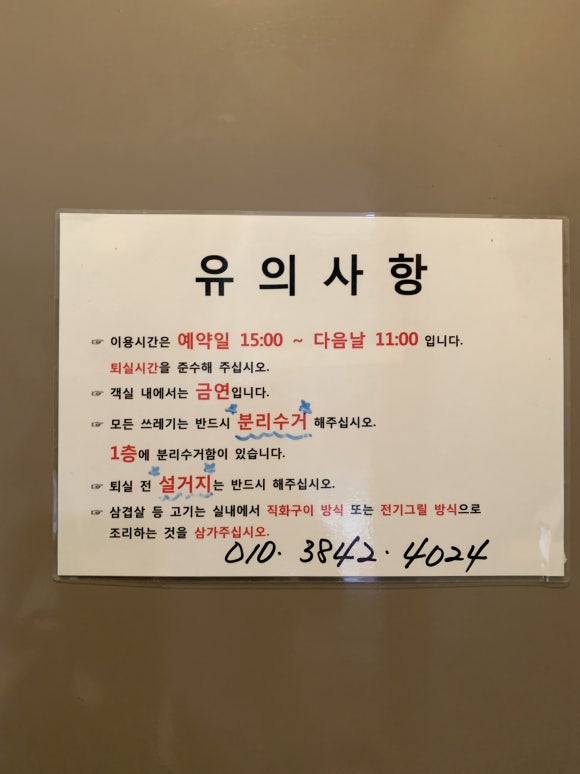 유의사항
☞ 이용시간은 예약일 15:00 ~ 다음날 11:00 입니다.
퇴실시간을 준수해 주십시오.
☞ 객실 내에서는 금연입니다.
☞ 모든 쓰레기는 반드시 분리수거 해주십시오.
1층에 분리수거함이 있습니다.
☞ 퇴실 전 설거지는 반드시 해주십시오.
☞ 삼겹살 등 고기는 실내에서 직화구이 방식 또는 전기그릴 방식으로
조리하는 것을 삼가주십시오.
010. 3842. 4024